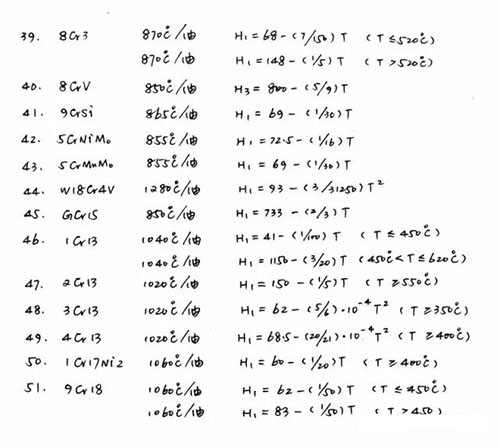 39. 8Cr3 870℃/油 H₁=68-(7/150)T (T≤520℃)
870℃/油 H₁=148-(1/5)T (T>520℃)
40. 8CrV 850℃/油 H₃=800-(5/9)T
41. 9CrSi 865℃/油 H₁=69-(1/30)T
42. 5CrNiMo 855℃/油 H₁=72.5-(1/16)T
43. 5CrMnMo 855℃/油 H₁=69-(1/30)T
44. W18Cr4V 1280℃/油 H₁=93-(3/31250)T²
45. GCr15 850℃/油 H₁=733-(2/3)T
46. 1Cr13 1040℃/油 H₁=41-(1/100)T (T≤450℃)
1040℃/油 H₁=1150-(3/20)T (450℃<T≤620℃)
47. 2Cr13 1020℃/油 H₁=150-(1/5)T (T≥550℃)
48. 3Cr13 1020℃/油 H₁=62-(5/6)·10⁻⁴T² (T≥350℃)
49. 4Cr13 1020℃/油 H₁=68.5-(20/21)·10⁻⁴T² (T≥400℃)
50. 1Cr17Ni2 1060℃/油 H₁=60-(1/20)T (T≥400℃)
51. 9Cr18 1060℃/油 H₁=62-(1/50)T (T≤450℃)
1060℃/油 H₁=83-(1/50)T (T>450)